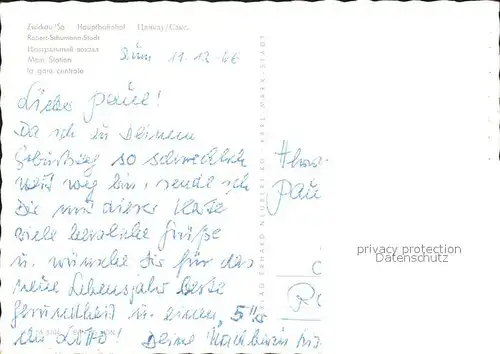 Zwickau/Sa. Hauptbahnhof Цвикау/Сакс.
Robert-Schumann-Stadt
Центральный вокзал
Main Station
la gare centrale
11.12.66
Lieber Paul!
Da ich zu Deinem
Geburtstag so schrecklich
weit weg bin, sende ich
Dir mit dieser Karte
viele herzliche Grüße
u. wünsche Dir für das
neue Lebensjahr beste
Gesundheit u. einen 5er
im Lotto! Deine Nachbarin
Paul
VERLAG ERHARD NEUBERT KG KARL-MARX-STADT
privacy protection
Datenschutz